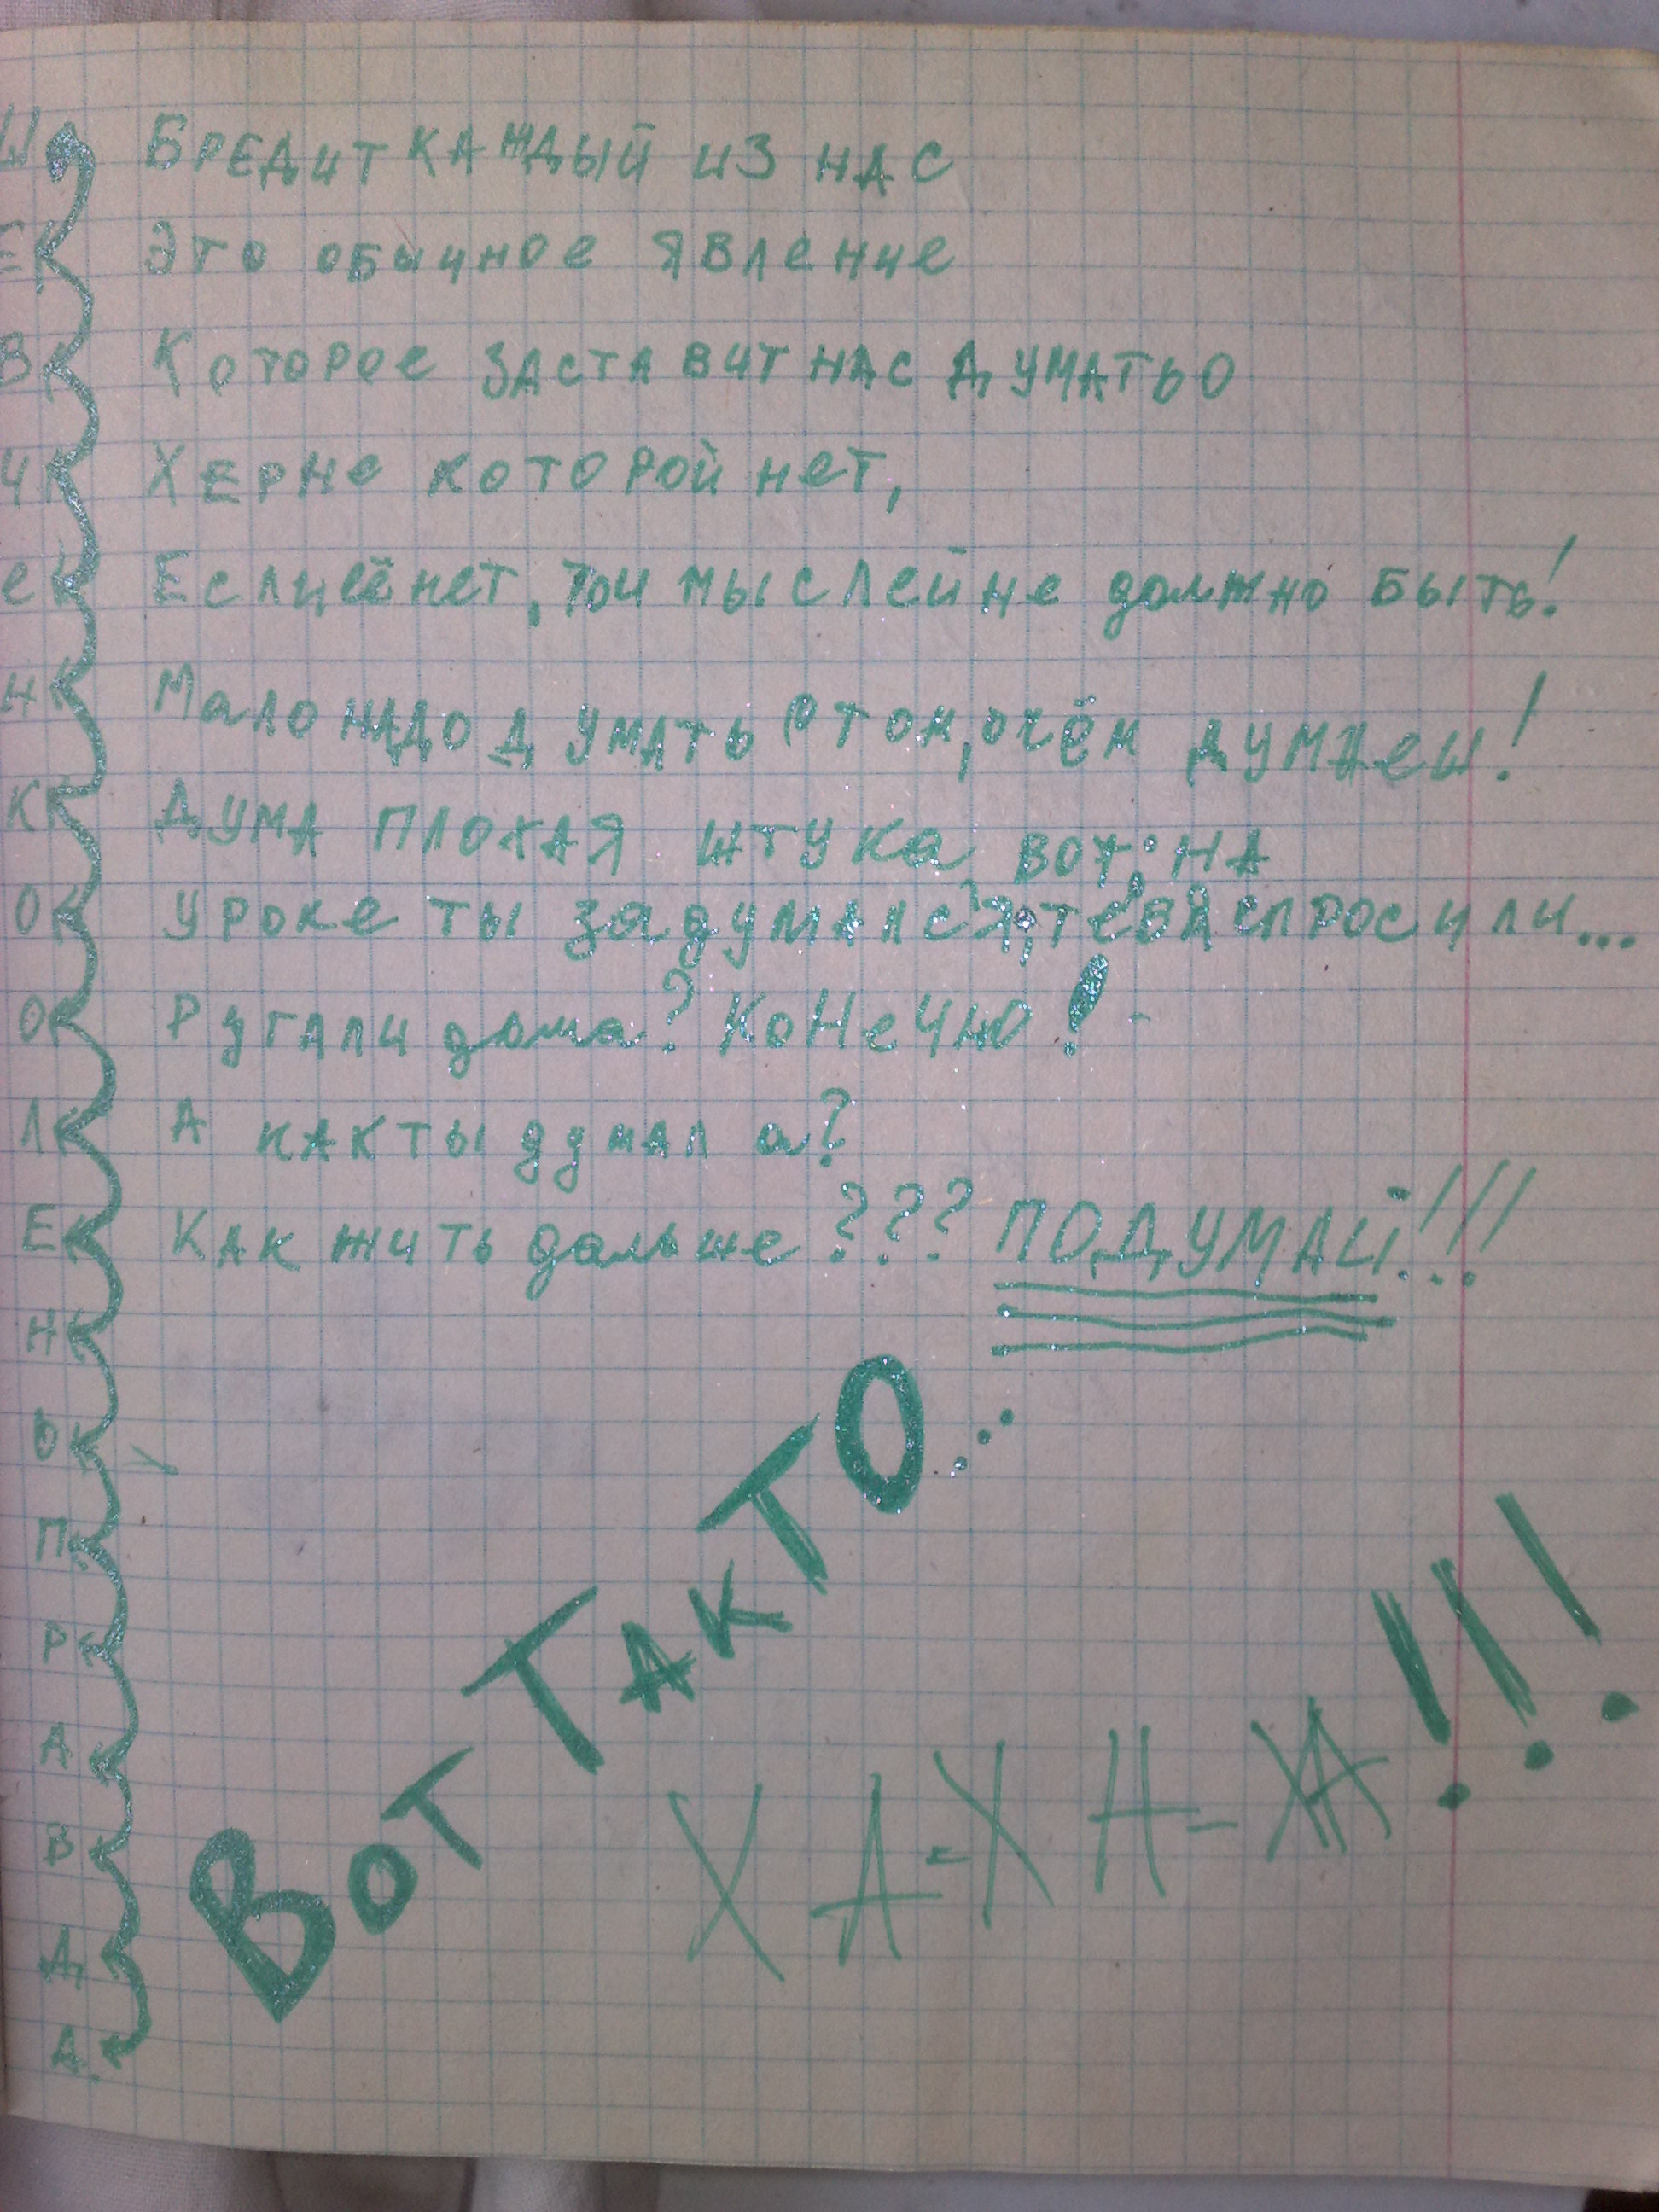 Бредит каждый из нас
Это обычное явление
Которое заставит нас думать о
Херне которой нет,
Если её нет, то и мыслей не должно быть!
Мало надо думать о том, о чём думаеш!
Дума плохая штука, вот: на
уроке ты задумался, тебя спросили...
Ругали дома? Конечно!
А как ты думал а?
Как жить дальше??? ПОДУМАЙ!!!
Вот так то...
ХА-ХА-ХА!!!
Ш
Е
В
Ч
е
Н
К
О
О
Л
Е
Н
Ь
П
Р
А
В
Д
А.